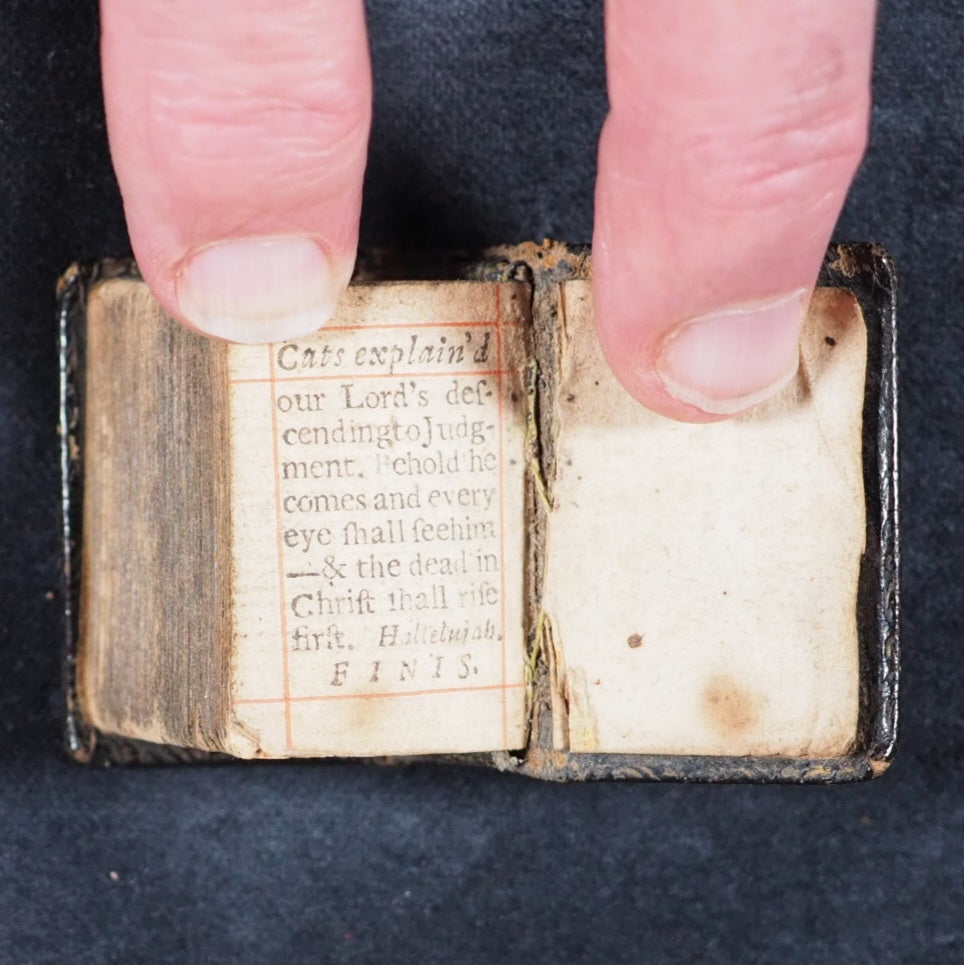 Cats explain'd
our Lord's deſ-
cendingtoJudg-
ment. Behold he
comes and every
eye ſhall ſeehim
—& the dead in
Chriſt ſhall riſe
firſt. Hallelujah.
FINIS.